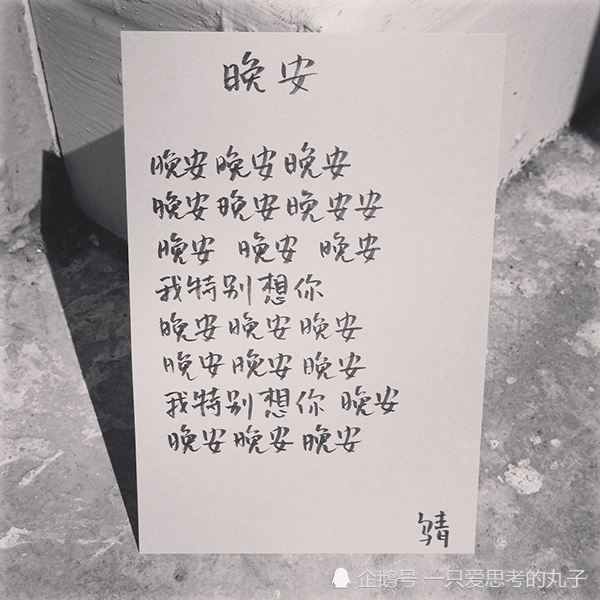 晚安
晚安晚安晚安
晚安晚安晚安安
晚安 晚安 晚安
我特别想你
晚安晚安晚安
晚安晚安晚安
我特别想你 晚安
晚安晚安晚安
乌青
企鹅号 一只爱思考的丸子